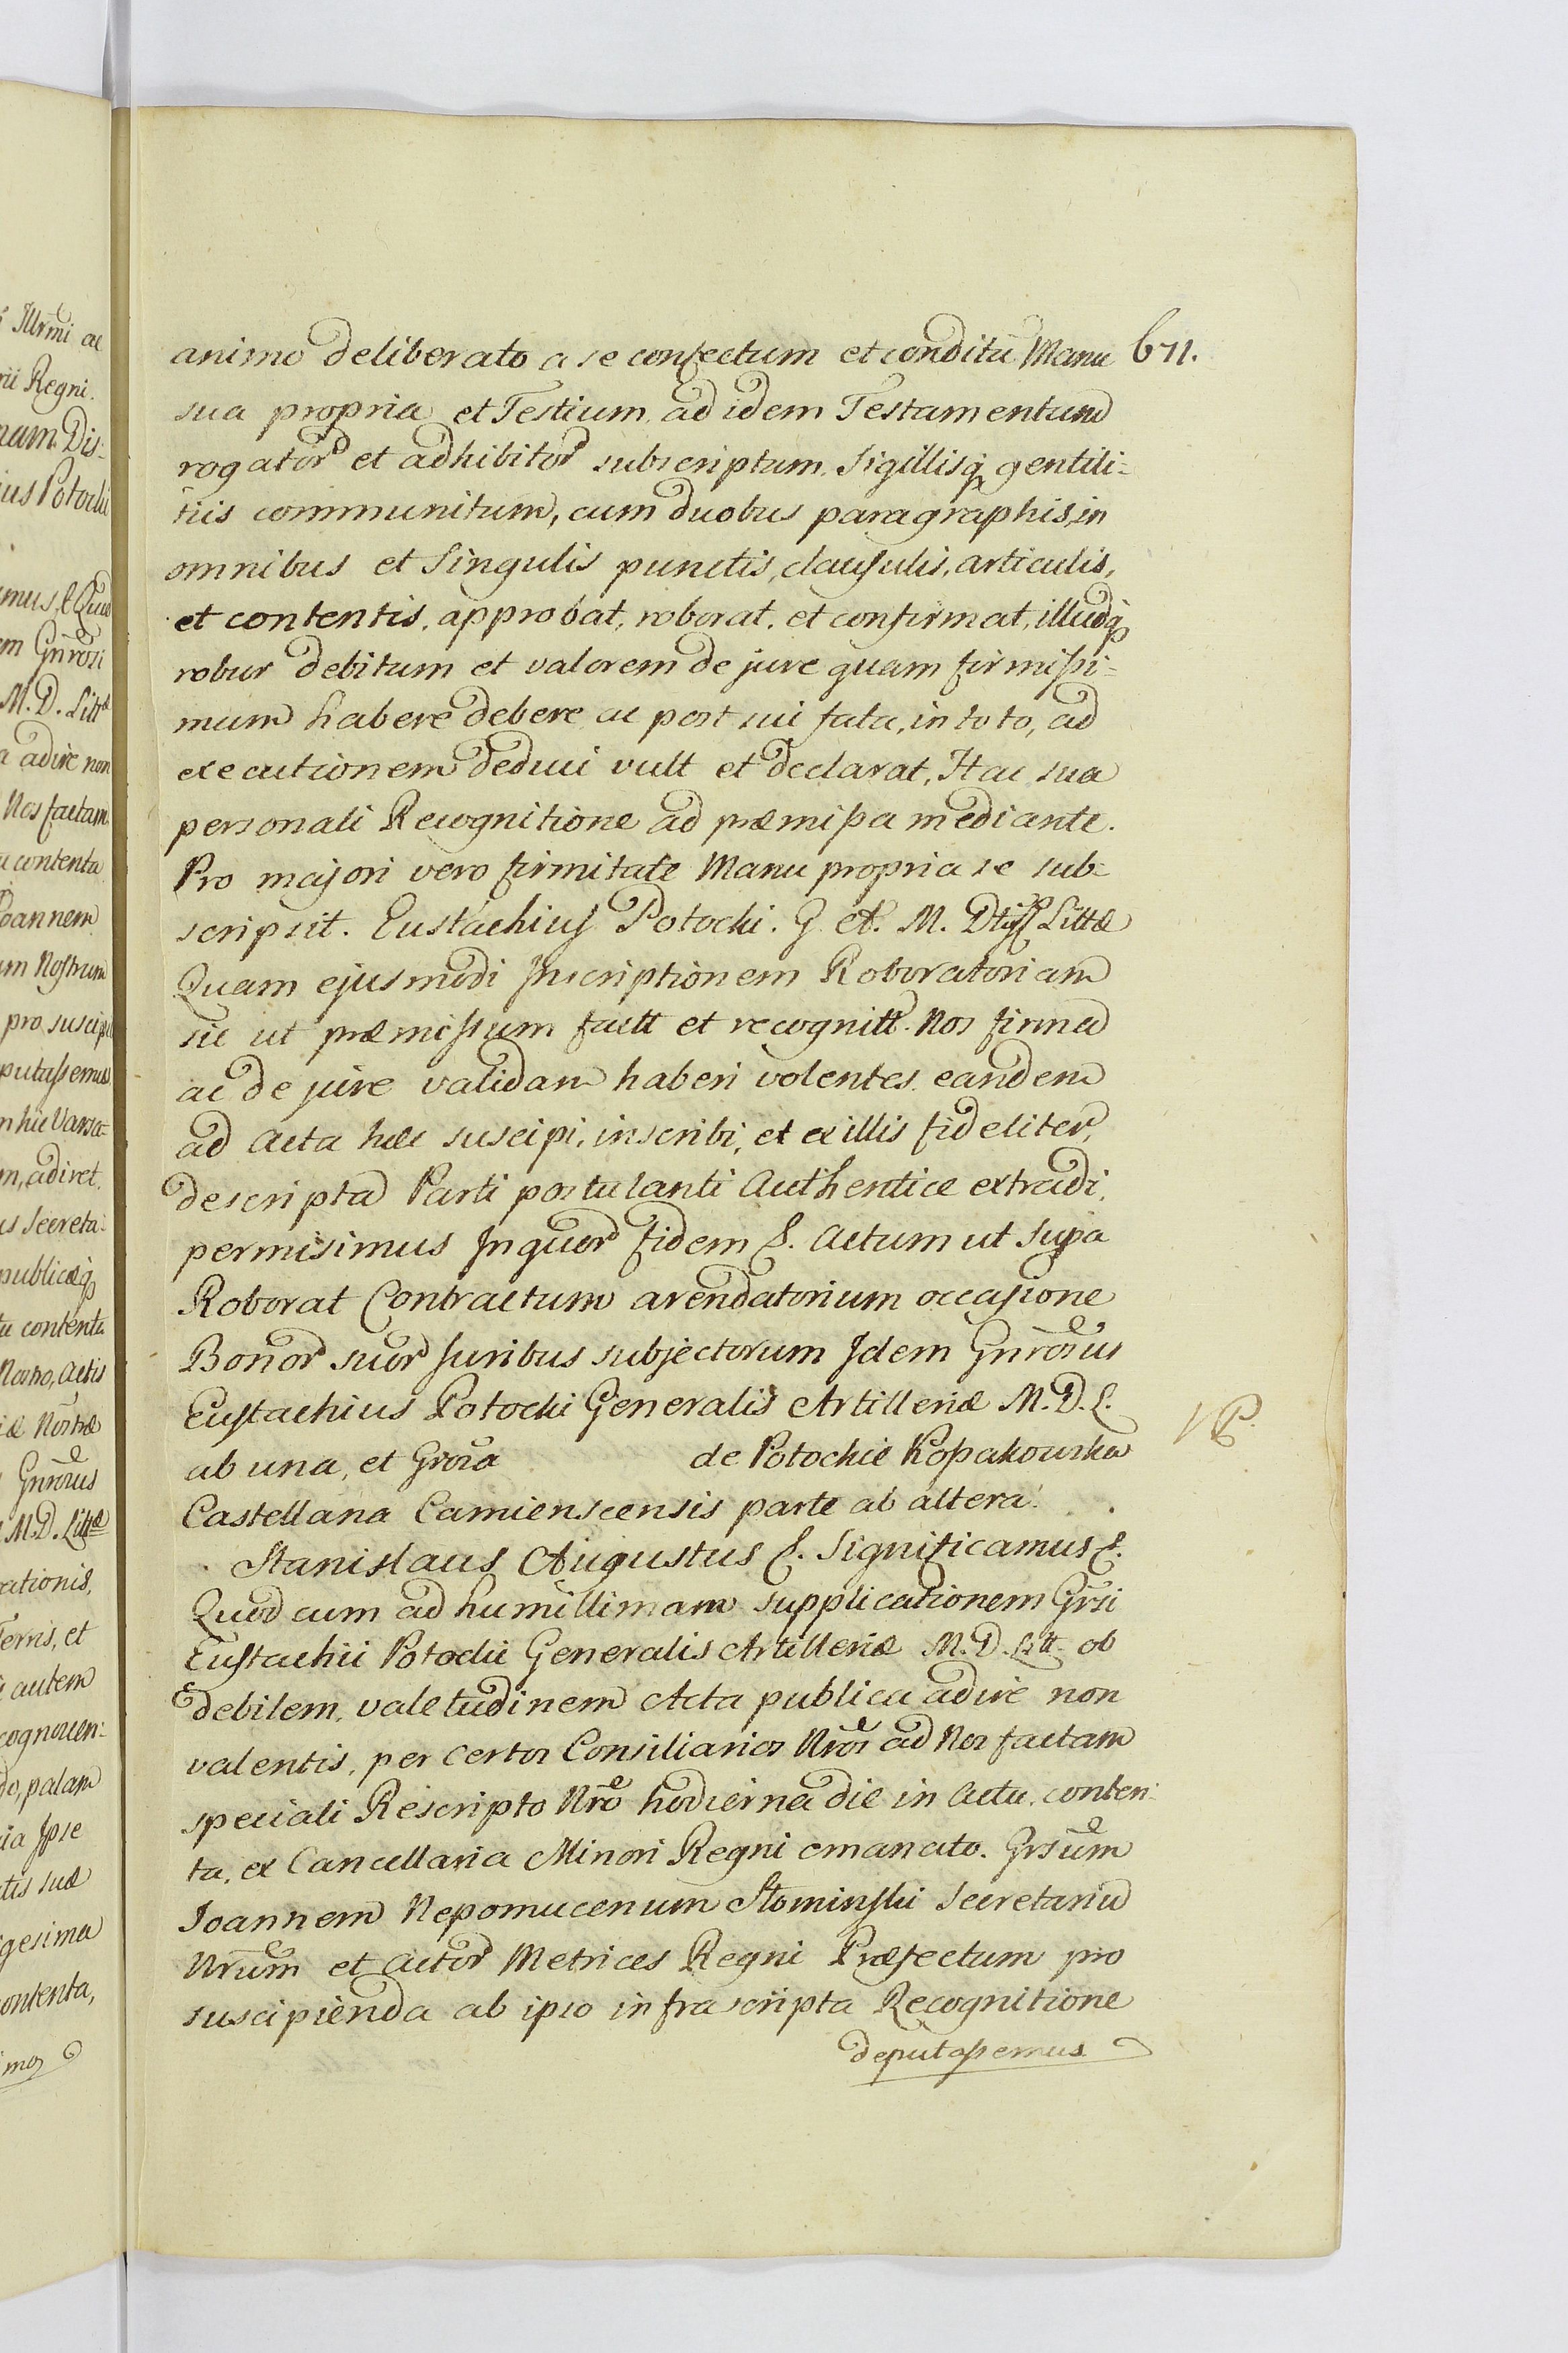 671.
animo deliberato a se confectum et conditū Manu
sua propria et Testium ad idem Testamentum
rogator et adhibitor subscriptum, Sigillisq gentili-
tiis communitum, cum duobus paragraphis, in
omnibus et Singulis punctis, clausulis, articulis,
et contentis, approbat, roborat, et confirmat, illudq
robur debitum et valorem de jure quam firmissi-
mum habere debere ac post sui fata, in toto, ad
executionem deduci vult et declarat, Hac sua
personali Recognitione ad præmissa mediante.
Pro majori vero firmitate Manu propria se sub-
scripsit. Eustachius Potocki. G. A. M. Litt̃æ
Quam ejusmodi Inscriptionem Roboratoriam
sic ut præmissum factt et recognitt. Nos firma
ac de jure validam haberi volentes eandem
ad Acta hæc suscipi, inscribi, et ex illis fideliter,
descripta Parti postulanti Authentice extradi,
permisimus Inquor fidem &. Actum ut Supa
Roborat Contractum arendatorium occasione
Bonor suor Juribus subjectorum Idem Gnrosus
Eustachius Potocki Generalis Artilleriæ M. D. L.
ab una, et Grosa de Potockie Kossakowska
Castellana Camienscensis parte ab altera.
Stanislaus Augustus &. Significamus &.
Quod cum ad humillimam supplicationem Grsi
Eustachii Potocki Generalis Artilleriæ M. D. Litt. ob
debilem, valetudinem Acta publica adire non
valentis, per certos Consiliarios Nros ad Nos factam
speciali Rescripto Nro hodierna die in Actu conten-
ta, ex Cancellaria Minori Regni emanato. Grsum
Joannem Nepomucenum Słominski Secretariū
Nrum et Actor Metrices Regni Præfectum pro
suscipienda ab ipso infrascripta Recognitione
deputassemus